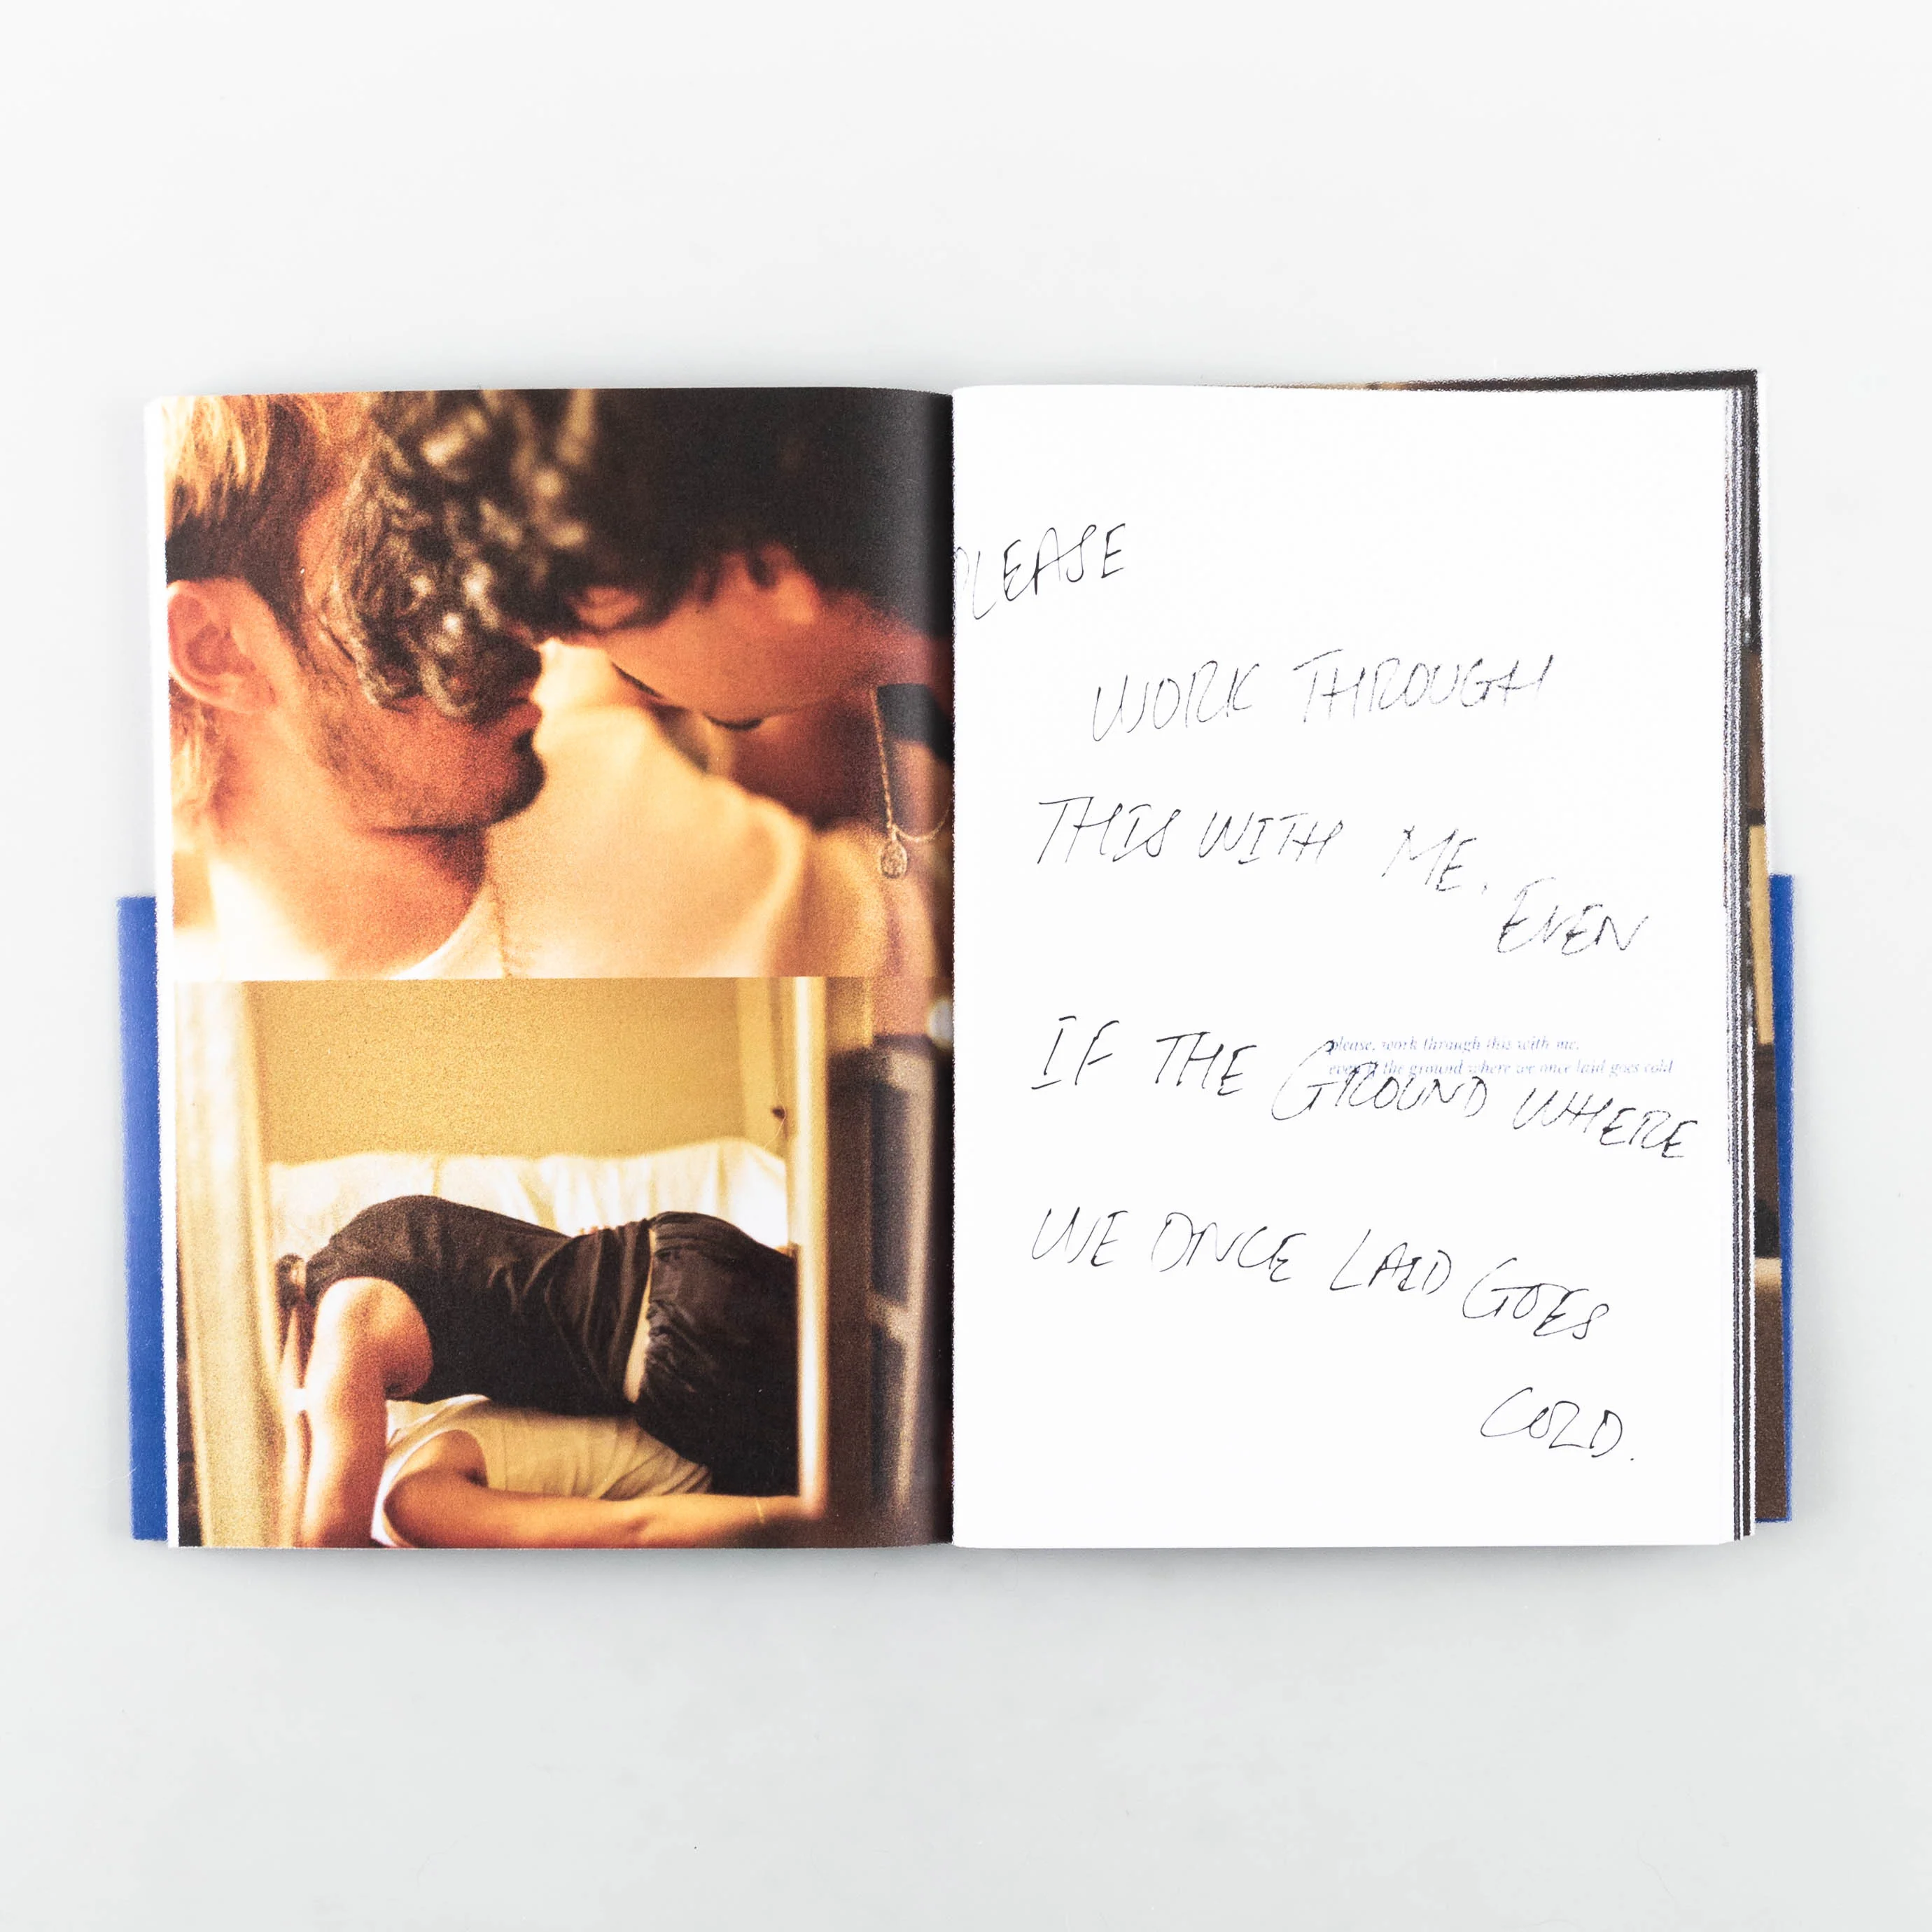 PLEASE
WORK THROUGH
THIS WITH ME. EVEN
IF THE GROUND WHERE
WE ONCE LAID GOES
COLD.
please, work through this with me.
even if the ground where we once laid goes cold